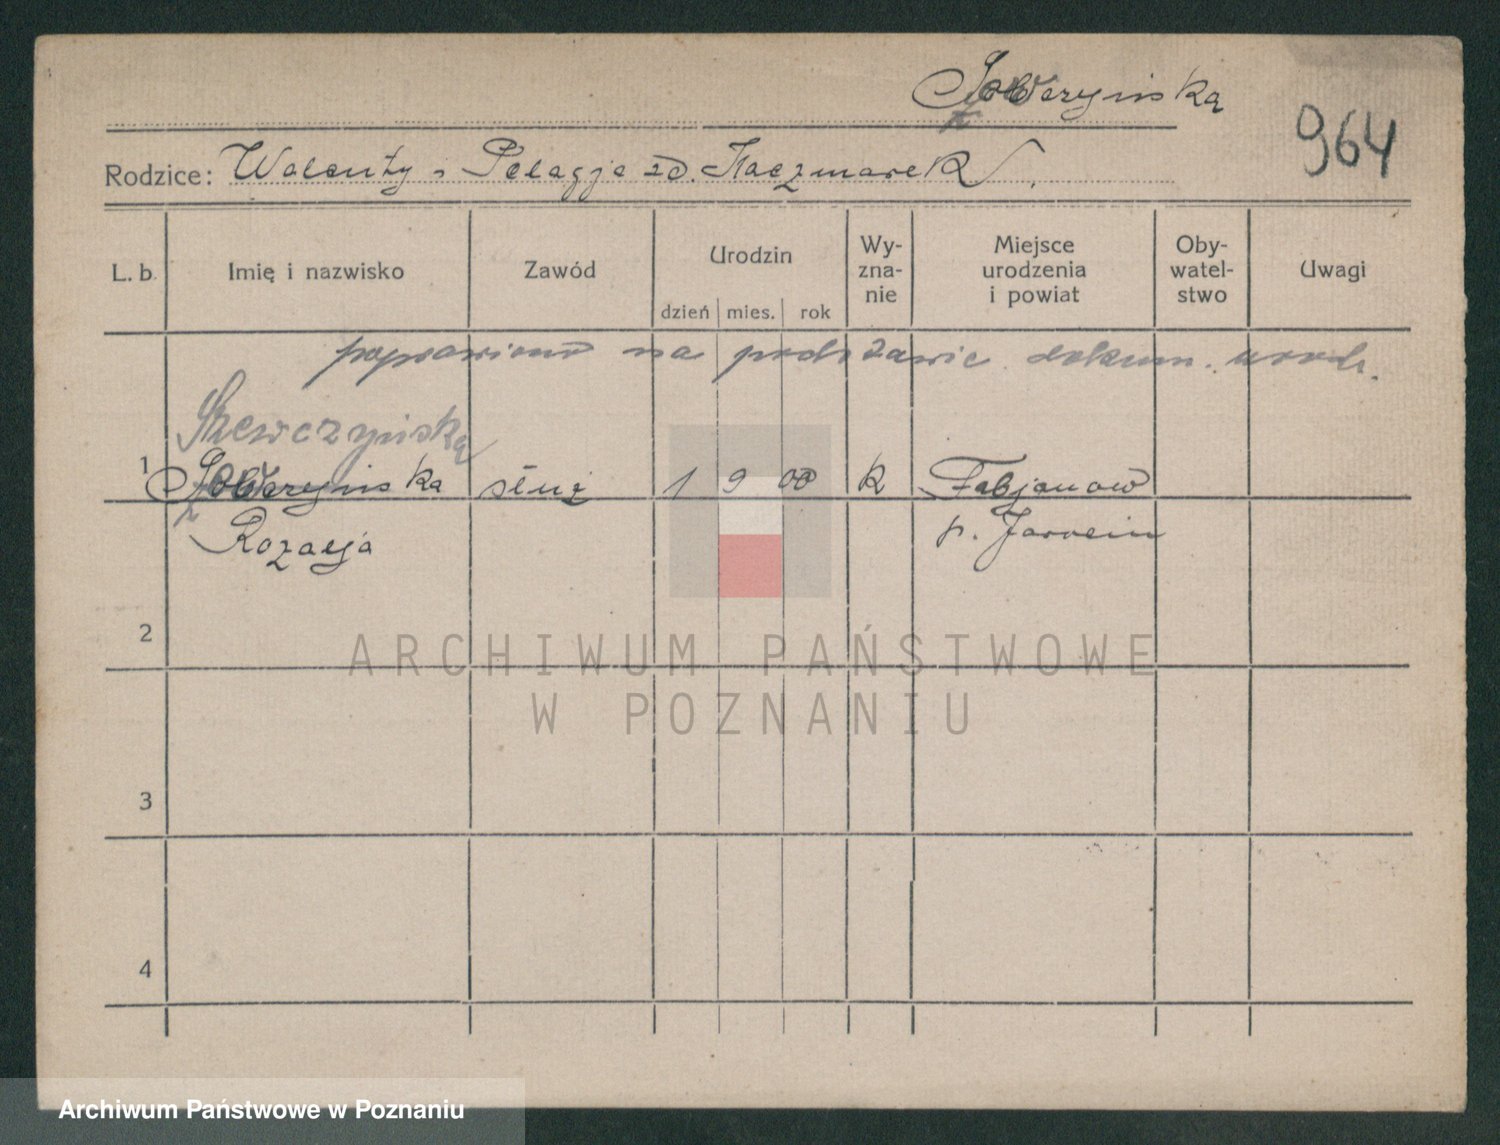 964
Rodzice: Walenty i Pelagja zd. Kaczmarek
L. b. Imię i nazwisko Zawód Urodzin dzień mies. rok Wy-zna-nie Miejsce urodzenia i powiat Oby-watel-stwo Uwagi
poprawiono na podstawie dokum. urodz.
Szewczyńska
1 służ 1 9 00 k Fabjanow
Rozalja p. Jarocin
2
3
4
ARCHIWUM PAŃSTWOWE
W POZNANIU
Archiwum Państwowe w Poznaniu